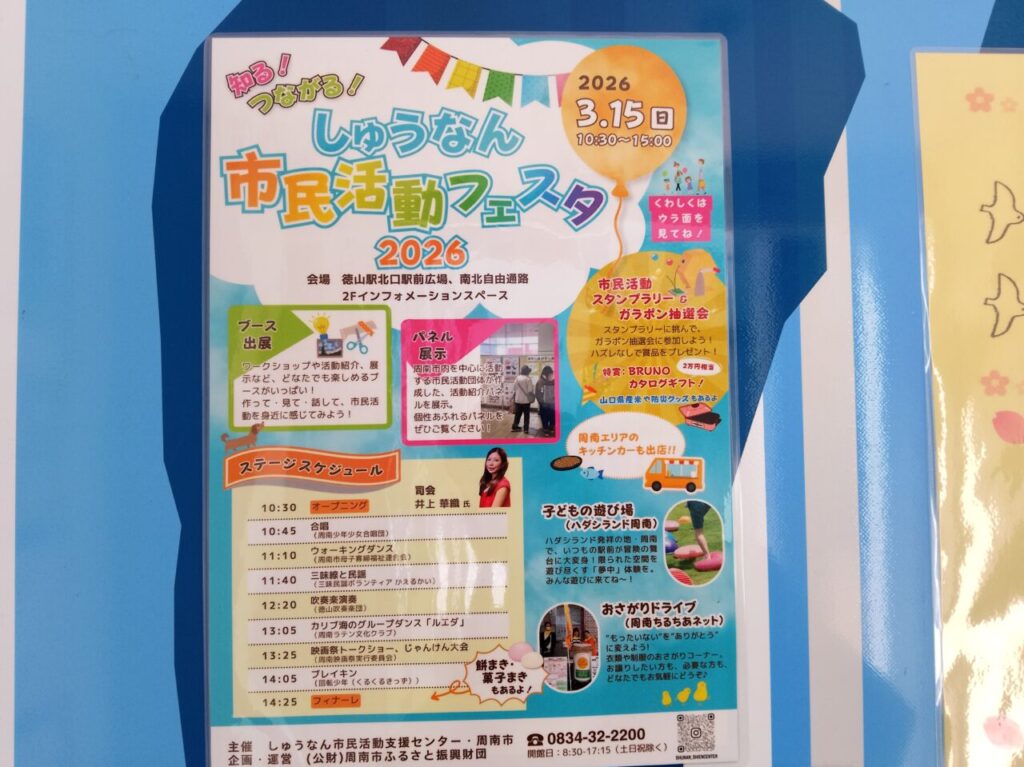 知る!
つながる!
しゅうなん
市民活動フェスタ
2026
2026
3.15日
10:30～15:00
くわしくは
ウラ面を
見てね!
会場 徳山駅北口駅前広場、南北自由通路
2Fインフォメーションスペース
ブース
出展
ワークショップや活動紹介、展
示など、どなたでも楽しめるブ
ースがいっぱい!
作って・見て・話して、市民活
動を身近に感じてみよう!
パネル
展示
周南市内を中心に活動
する市民活動団体が作
成した、活動紹介パネ
ルを展示。
個性あふれるパネルを
ぜひご覧ください!
市民活動
スタンプラリー &
ガラポン抽選会
スタンプラリーに挑んで、
ガラポン抽選会に参加しよう!
ハズレなしで賞品をプレゼント!
特賞:BRUNO
カタログギフト!
2万円相当
山口県産米や防災グッズもあるよ
周南エリアの
キッチンカーも出店!!
ステージスケジュール
司会
井上 華織 氏
10:30 オープニング
10:45 合唱
(周南少年少女合唱団)
11:10 ウォーキングダンス
(周南市母子寡婦福祉連合会)
11:40 三味線と民謡
(三味民謡ボランティア かえるかい)
12:20 吹奏楽演奏
(徳山吹奏楽団)
13:05 カリブ海のグループダンス「ルエダ」
(周南ラテン文化クラブ)
13:25 映画祭トークショー、じゃんけん大会
(周南映画祭実行委員会)
14:05 ブレイキン
(回転少年(くるくるきっず))
14:25 フィナーレ
餅まき・
菓子まき
もあるよ!
子どもの遊び場
(ハダシランド周南)
ハダシランド発祥の地・周南
で、いつもの駅前が冒険の舞
台に大変身!限られた空間を
遊び尽くす「夢中」体験を。
みんな遊びに来てね～!
おさがりドライブ
(周南ちるちあネット)
"もったいない"を"ありがとう"
に変えよう!
衣類や制服のおさがりコーナー。
お譲りしたい方も、必要な方も、
どなたでもお気軽にどうぞ♪
主催 しゅうなん市民活動支援センター・周南市
企画・運営 (公財)周南市ふるさと振興財団
☎0834-32-2200
開館日:8:30-17:15(土日祝除く)
SHUNAN_SHIENCENTER